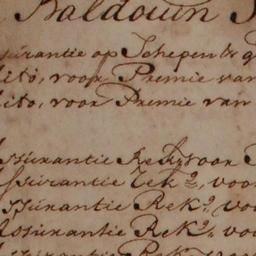 Baldouin
surantie op Schepen & g
dito, voor Premie van
dito, voor Premie van
Assurantie Rek. voor
Assurantie Rek.ᵍ, voor
Assurantie Rek.ᵍ, voo
Assurantie Rek.ᵍ, vo